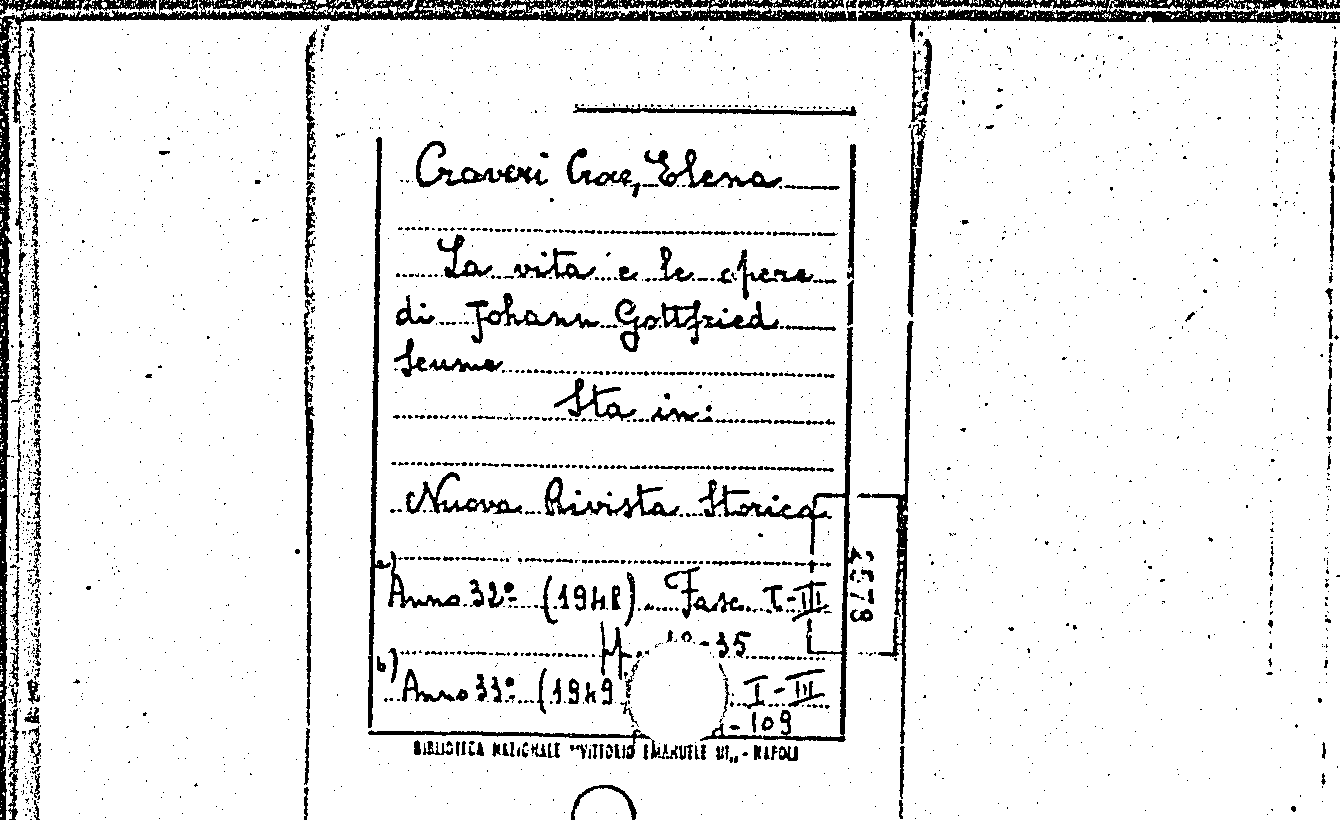 Craveri Croce, Elena
La vita e le opere
di Johann Gottfried
Seume
Sta in:
Nuova Rivista Storica
a)
Anno 32º (1948). Fasc. I-III
-35
b)
Anno 33º (1949 I-III
-109
BIBLIOTECA NAZIONALE "VITTORIO EMANUELE III„ - NAPOLI